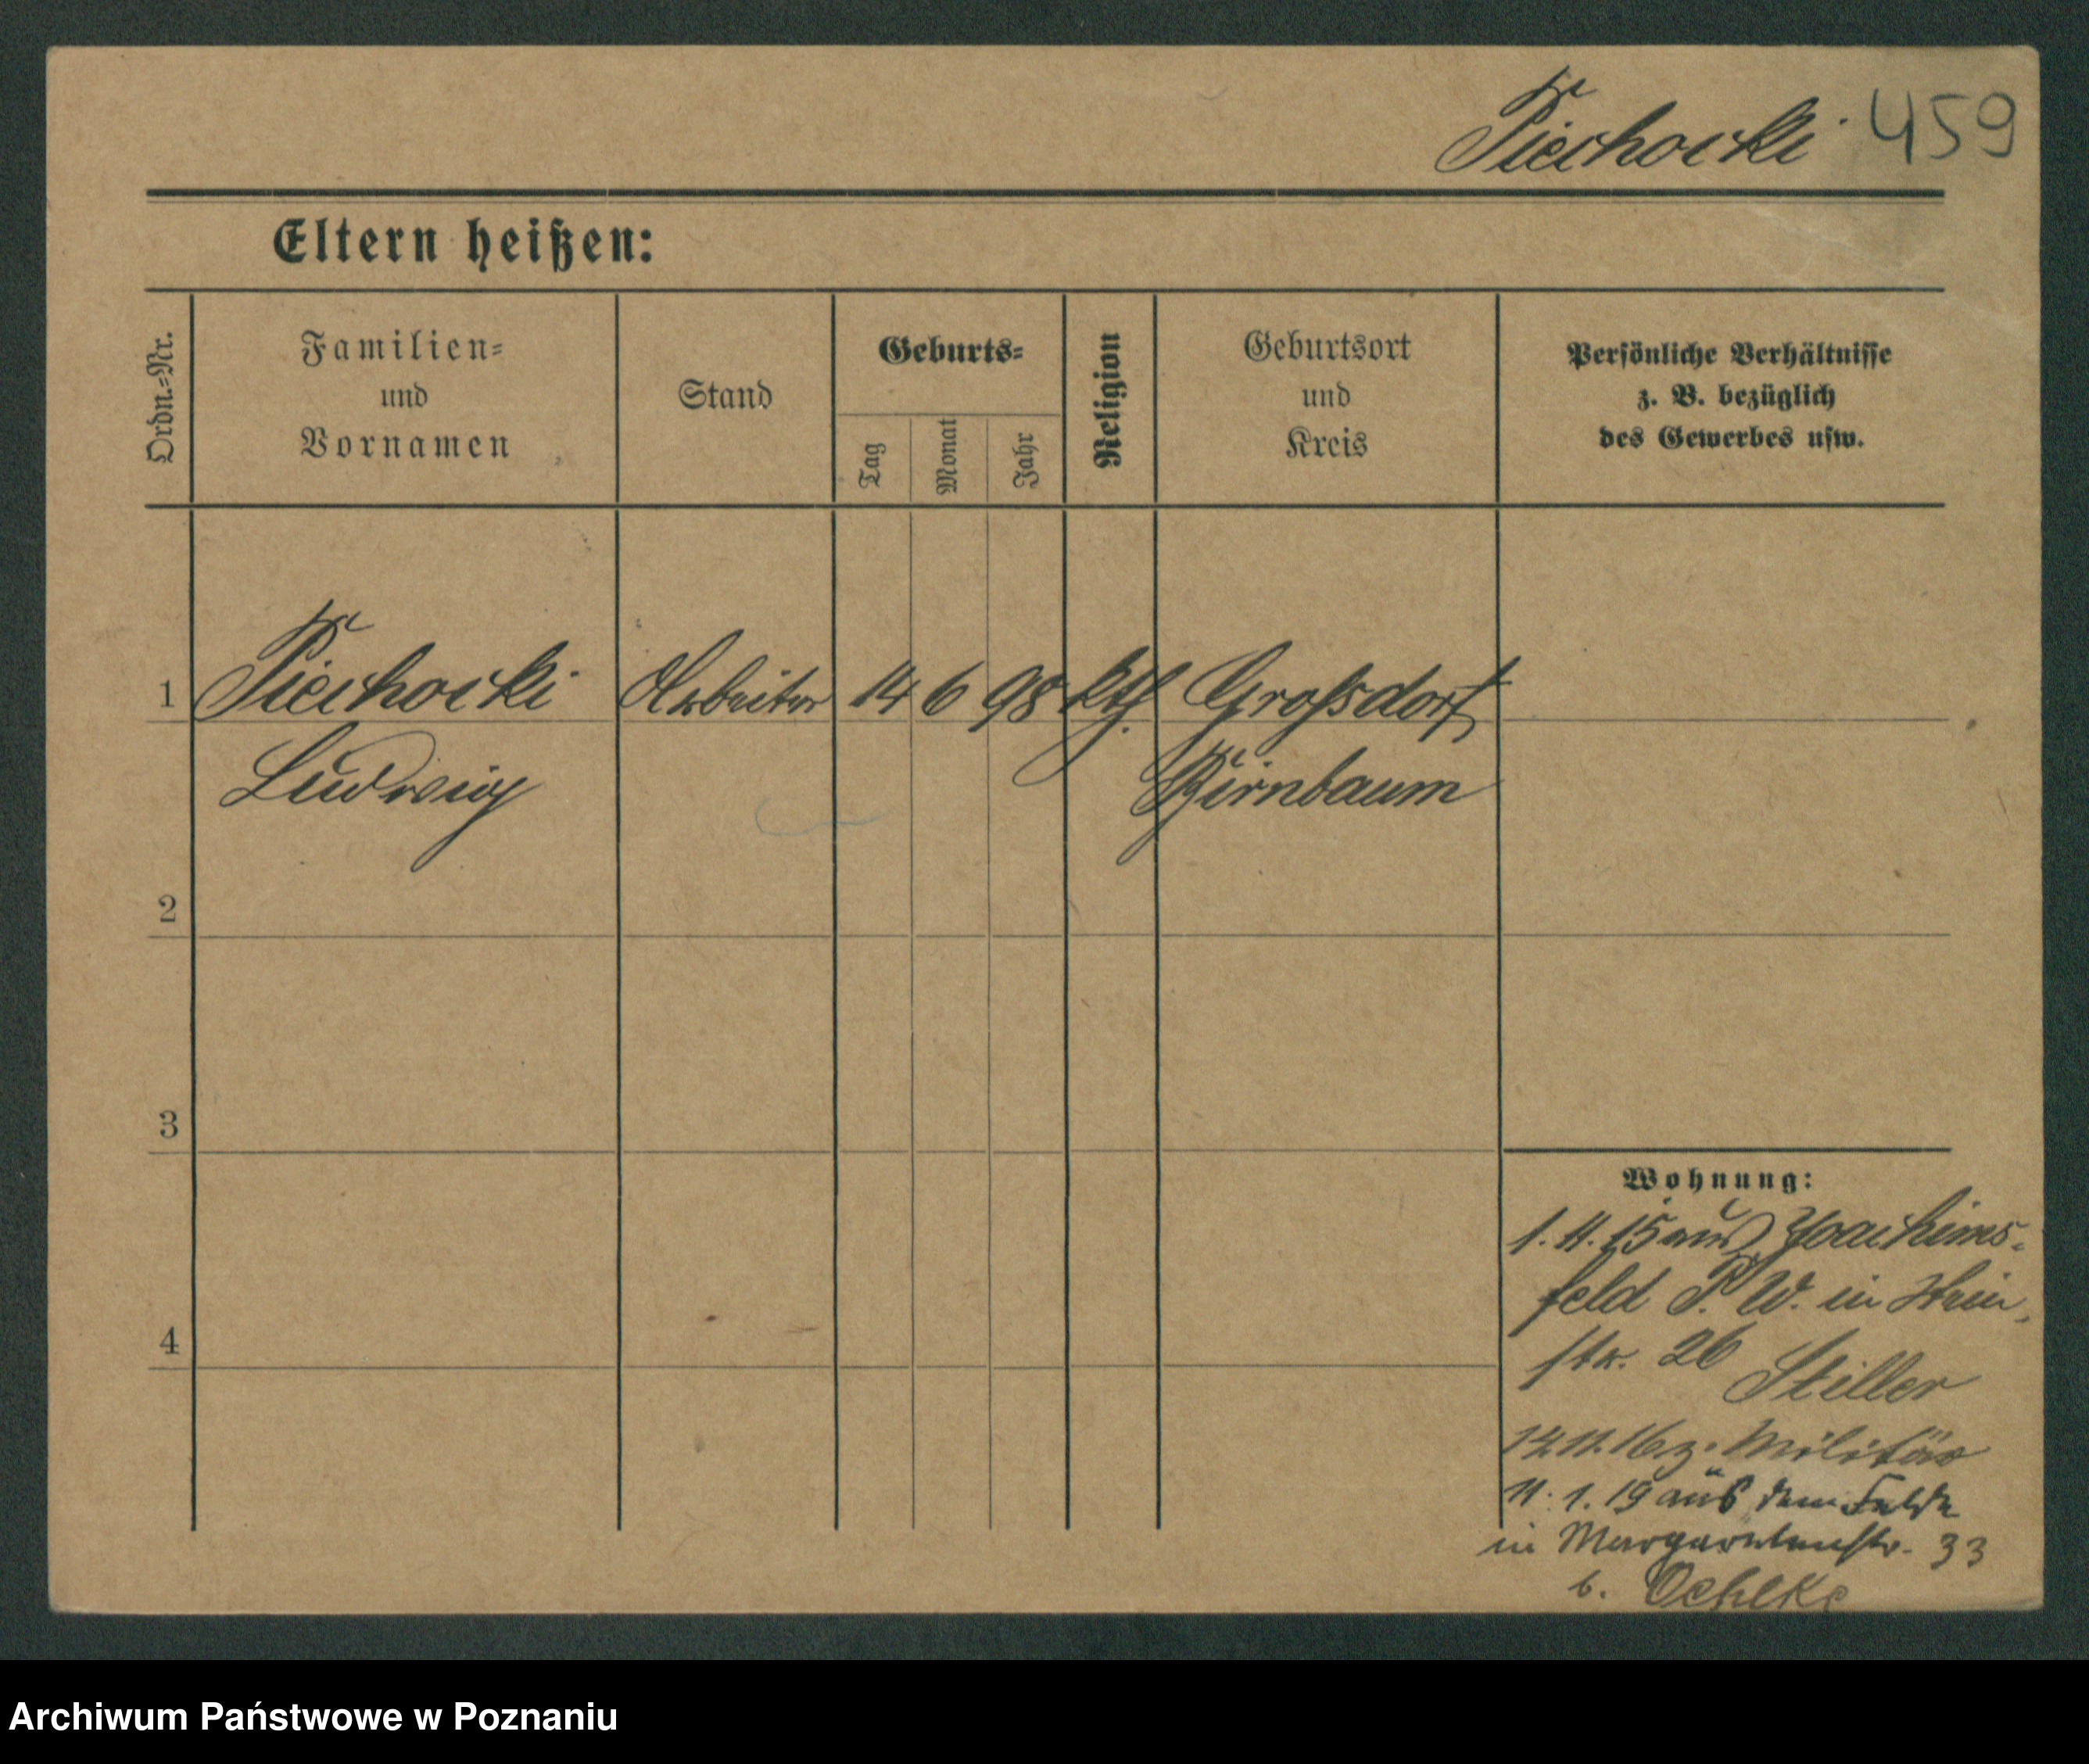 Piechocki 459
Eltern heißen:
Ordn.=Nr.
Familien=
und
Vornamen
Stand
Geburts=
Tag
Monat
Jahr
Religion
Geburtsort
und
Kreis
Persönliche Verhältnisse
z. B. bezüglich
des Gewerbes usw.
1 Piechocki Arbeiter 14 6 98 kth. Großdorf
Ludwig Birnbaum
2
3
4
Wohnung:
1. 11. 15 aus Joachims-
feld P. W. in
str. 26
Stiller
14. 11. 16 z. Militär
11. 1. 19 aus dem Felde
in Margaretenstr. 33
b. Oehlke
Archiwum Państwowe w Poznaniu